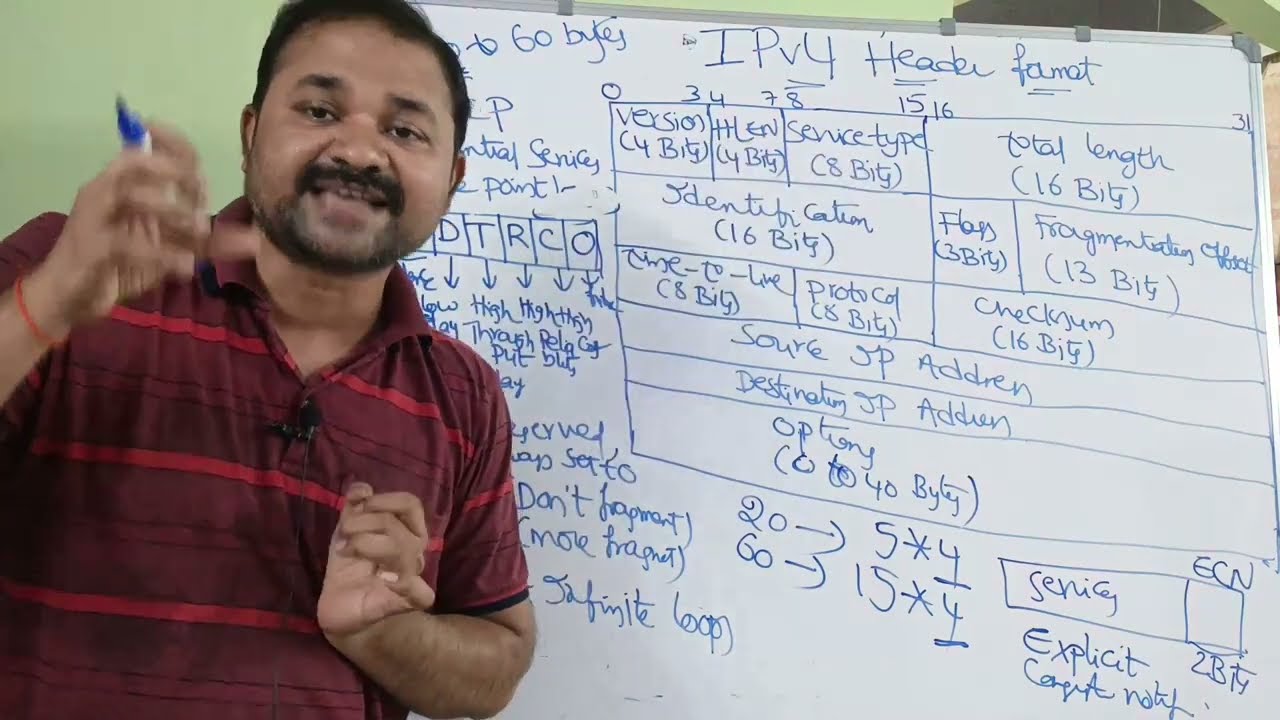 to 60 bytes
IPv4 Header format
0 3 4 7 8 15 16 31
Version (4 Bits)
HLEN (4 Bits)
Service type (8 Bits)
total length (16 Bits)
Identification (16 Bits)
Flags (3 Bits)
Fragmentation offset (13 Bits)
time-to-live (8 Bits)
protocol (8 Bits)
checksum (16 Bits)
Source IP Address
Destination IP Address
Options
(0 to 40 Bytes)
Services
point:-
D T R C O
low High High High
Through Rela Cost
put
Don't fragment)
(more fragnet)
Infinite loops
20 → 5*4
60 → 15*4
Services
ECN
2Bits
Explicit
notif